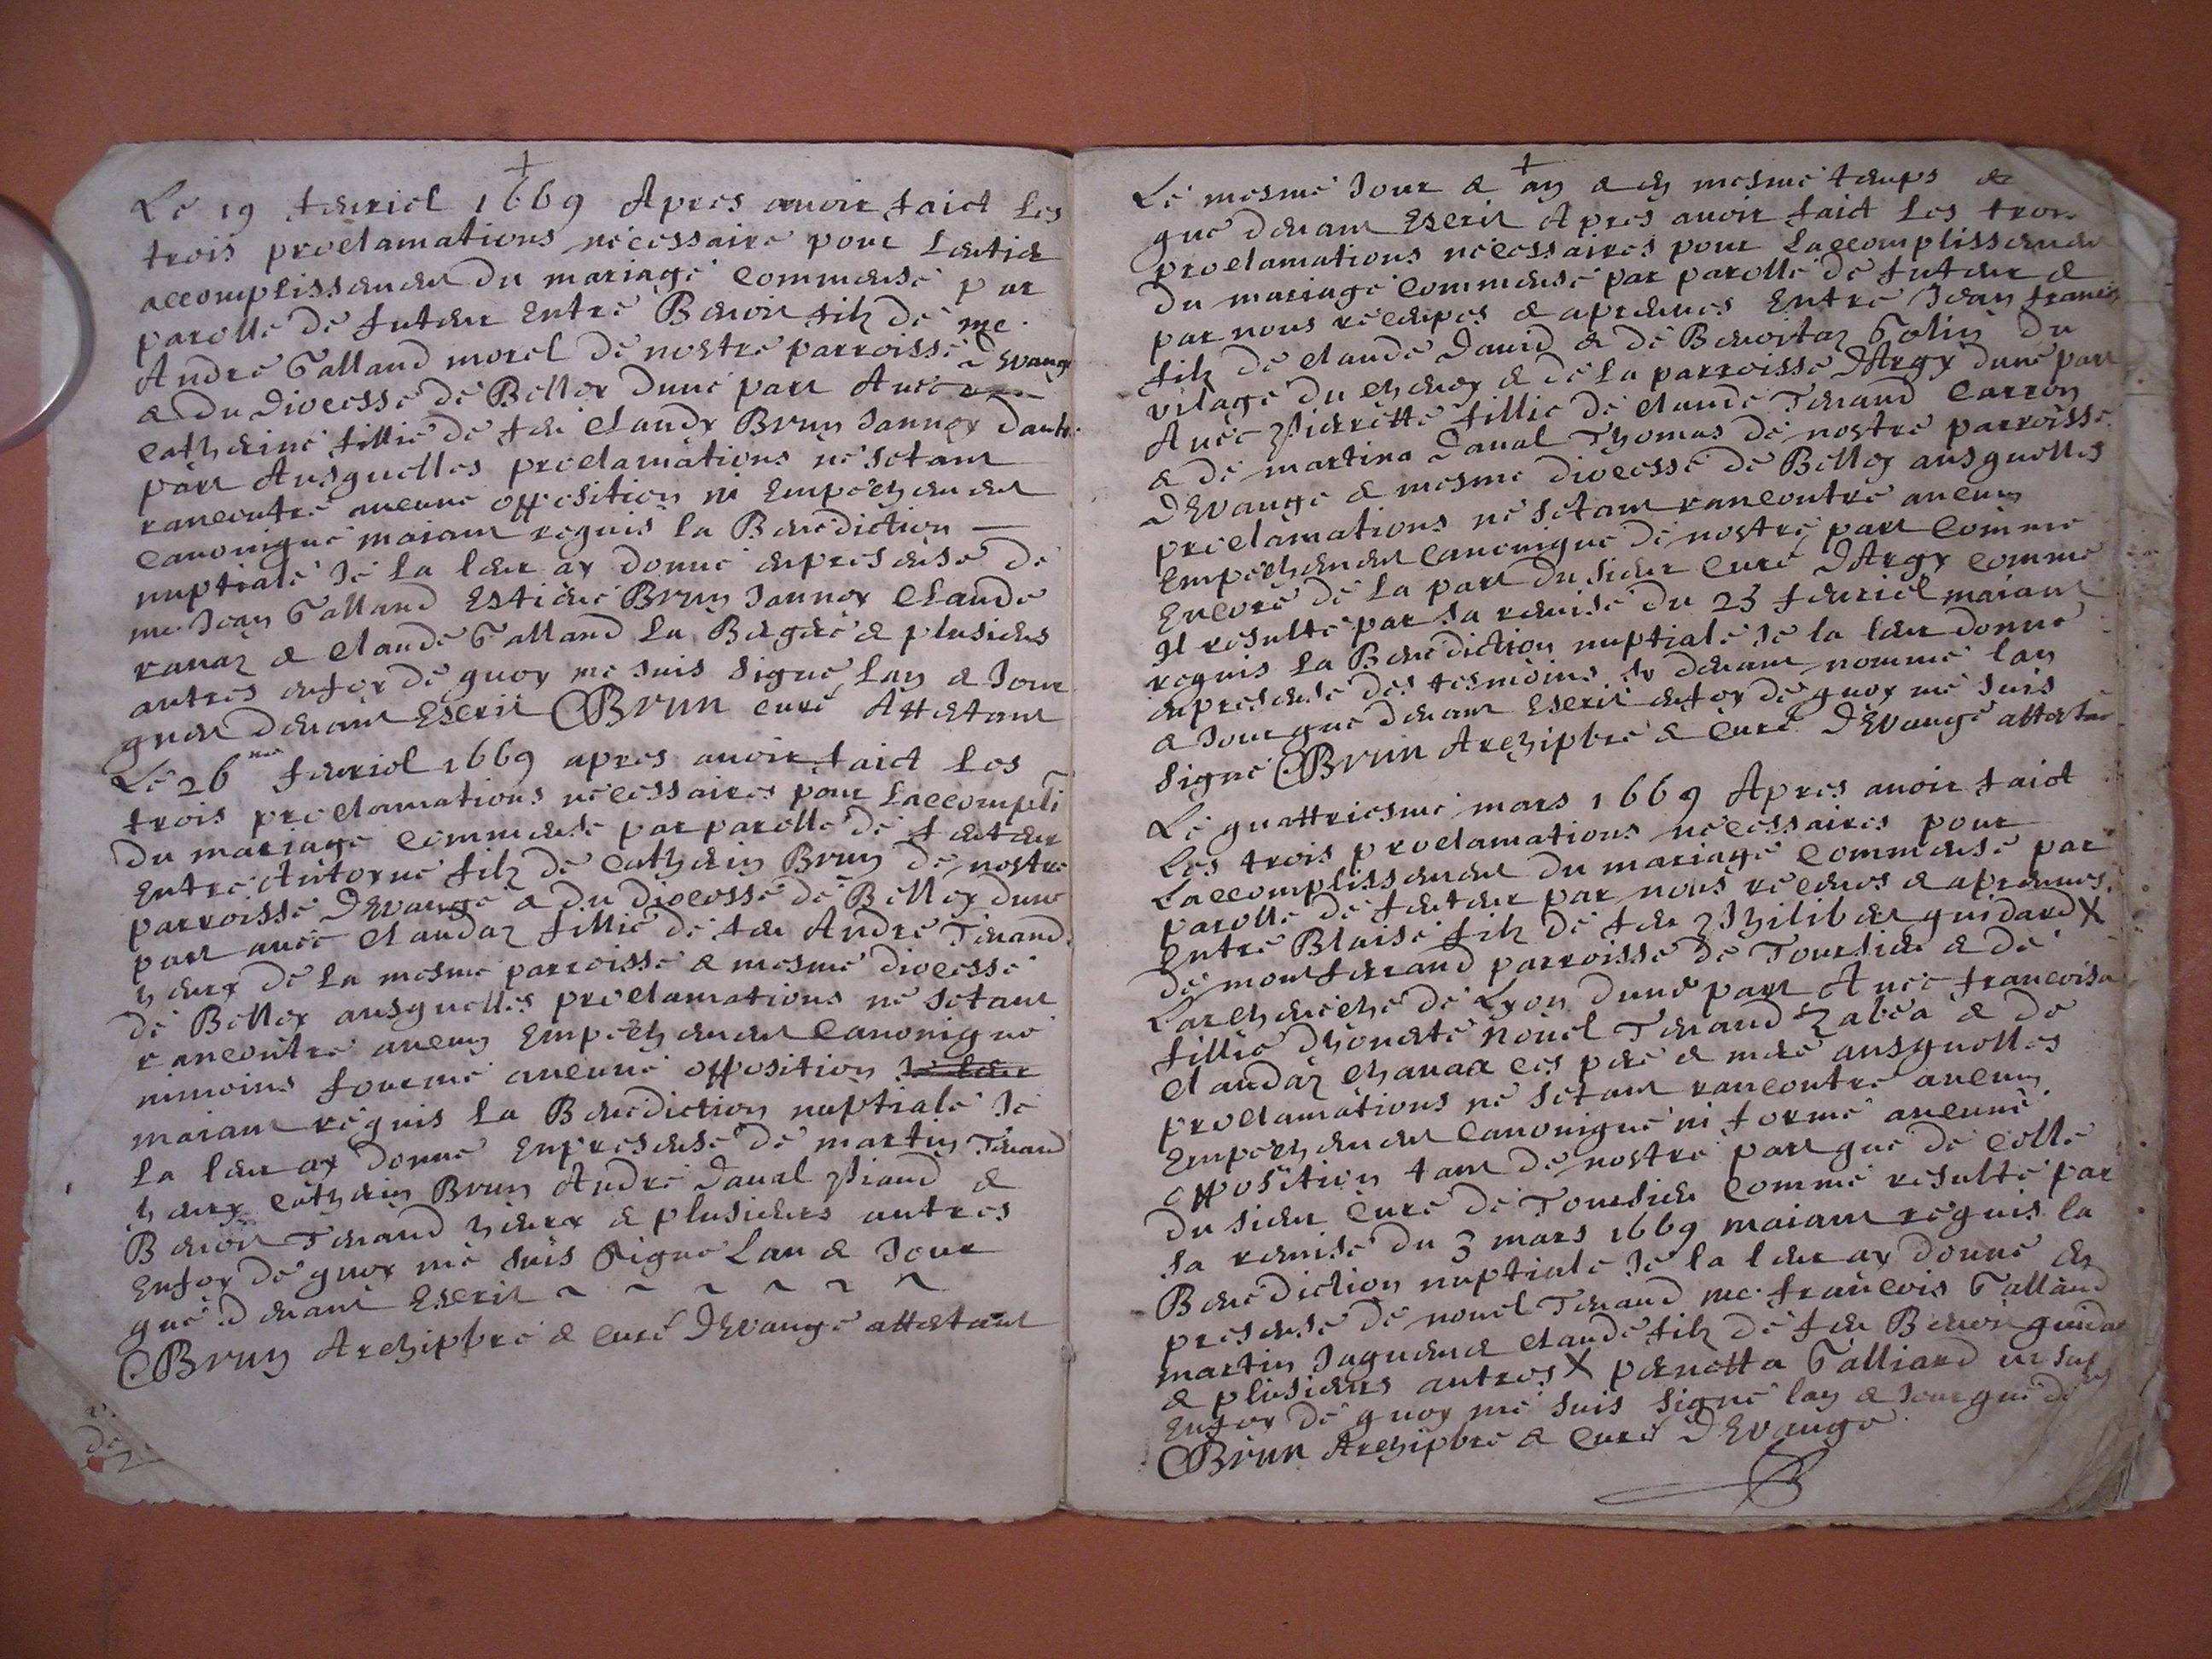 Le 19 feuriel 1669 Apres auoir faict les
trois proclamations necessaire pour Lentier
accomplissement du mariage commensé par
parolle de futeur Entre Benoit filz de me.
André Galland morel de nostre parroisse d'Evange
& du Diocesse de Belley dune part Auec
Catherine fillie de feu Claudy Brun Jannex dautre
part Ausquelles proclamations ne setant
rancontré aucune opposition ni Empechement
canonique maiant requis la Benediction —
nuptiale Je La leur ay donné enpresense de
me. Jean Galland Estiene Brun Jannex Claude
rauaz & Claude Galland La & plusieurs
autres enfoy de quoy me suis signé Lan & Jour
que devant Escrit Brun curé Attetant
Le 26me feuriel 1669 apres auoir faict Les
trois proclamations necessaires pour Laccompli
du mariage commensé par parolle de feuteur
Entre Antoyne filz de Catherin Brun de nostre
parroisse DEvange & du diocesse de Belley dune
part auec Claudaz fillie de feu André Tenand
heury de La mesme parroisse & mesme diocesse
de Belley ausquelles proclamations ne setant
rancontré aucun Empechement canonique
nimoins fourme aucune opposition Je leur
maiant requis La Benediction nuptiale Je
La leur ay donné Enpresense de martin Tenand
heury Catherin Brun André Daual piand &
Benoit Tenand & plusieurs autres
Enfoy de quoy me suis signé Lan & Jour
que devant Escrit ~ ~ ~ ~ ~ ~
Brun Archipbre & curé DEvange attetant
Le mesme Jour & an & en mesme temps &
que devant Escrit Apres auoir faict Les trois
proclamations necessaires pour Laccomplissement
du mariage commensé par parolle de futeur &
par nous receupes & apreuues Entre Jean francois
filz de Claude Dauid & de Benoitaz Golin du
vilage du & de La parroisse DArgy dune part
Auec Pierrette fillie de Claude Tenand Carron
& de martina Daual Thomas de nostre parroisse
DEvange & mesme diocesse de Belley ausquelles
proclamations ne setant rancontré aucun
Empechement canonique de nostre part comme
Encore de La part du sieur Curé DArgy comme
Il resulte par sa remise du 23 feuriel maiant
requis La Benediction nuptiale Je la leur donné
enpresense des tesmoins sy devant nommé lan
& Jour que devant Escrit enfoy de quoy me suis
signé Brun Archipbre & Curé DEvange attetant
Le quattriesme mars 1669 Apres auoir faict
Les trois proclamations necessaires pour
Laccomplissement du mariage commensé par
parolle de feuteur par nous receues & apreuues
Entre Blaise filz de feu Philibert guidard X
de montferrand parroisse de Toursieu & de
Larcheueché de Lyon dune part Auec francoisa
fillie dhoneté nouel Tenand & de
Claudaz chanaa ces pere & mere ausquelles
proclamations ne setant rancontré aucun
Empechement canonique ni formé aucune
opposition tant de nostre part que de celle
du sieur Curé de Toursieu comme resulte par
sa remise du 3 mars 1669 maiant requis la
Benediction nuptiale Je la leur ay donné en
presense de nouel Tenand me. francois Galland
martin Jaguenet Claude filz de feu Benoit guidar
& plusieurs autres X pernetta Galliard
Enfoy de quoy me suis signé lan & Jour que de
Brun Archipbre & Curé DEvange